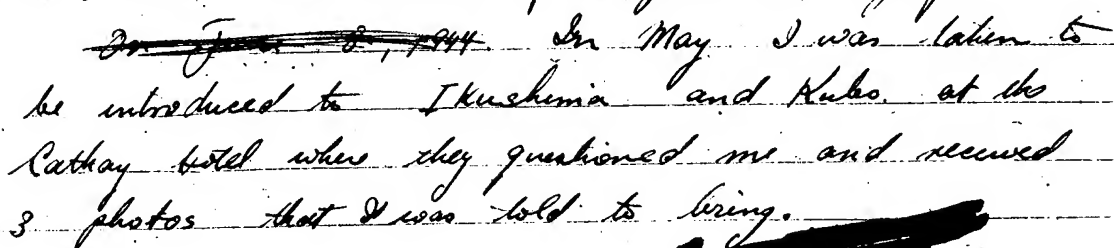 On June 8, 1944 In May I was taken to
be introduced to Ikushima and Kubo. at the
Cathay hotel where they questioned me and received
3 photos that I was told to bring.